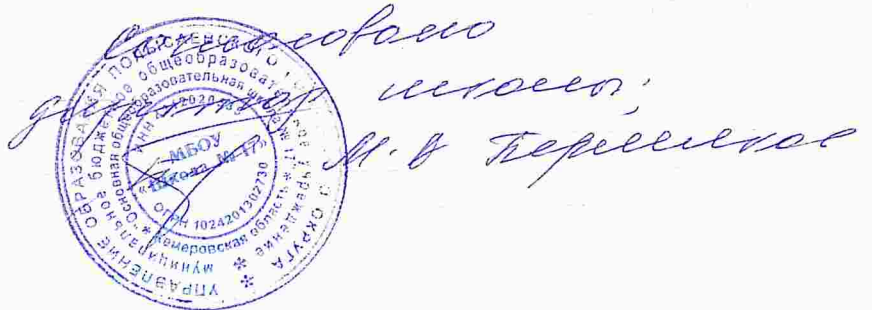 Согласовано
директор школы:
М. В
УПРАВЛЕНИЕ ОБРАЗОВАНИЯ ПОЛЫСАЕВСКОГО ОКРУГА *
муниципальное бюджетное общеобразовательное учреждение *
"Основная общеобразовательная школа № 17" * Кемеровская область *
ИНН
ОГРН 1024201302730
МБОУ
«Школа № 17»